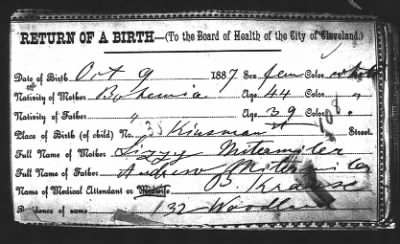 RETURN OF A BIRTH—(To the Board of Health of the City of Cleveland.)
Date of Birth Oct 9 1887 Sex fem Color white
Nativity of Mother Bohemia Age 44 Color "
Nativity of Father " Age 39 Color "
Place of Birth (of child) No. 35 Kinsman Street.
Full Name of Mother Lizzy
Full Name of Father Andrew
Name of Medical Attendant or Midwife B. Krause
Residence of same 132 Woodland